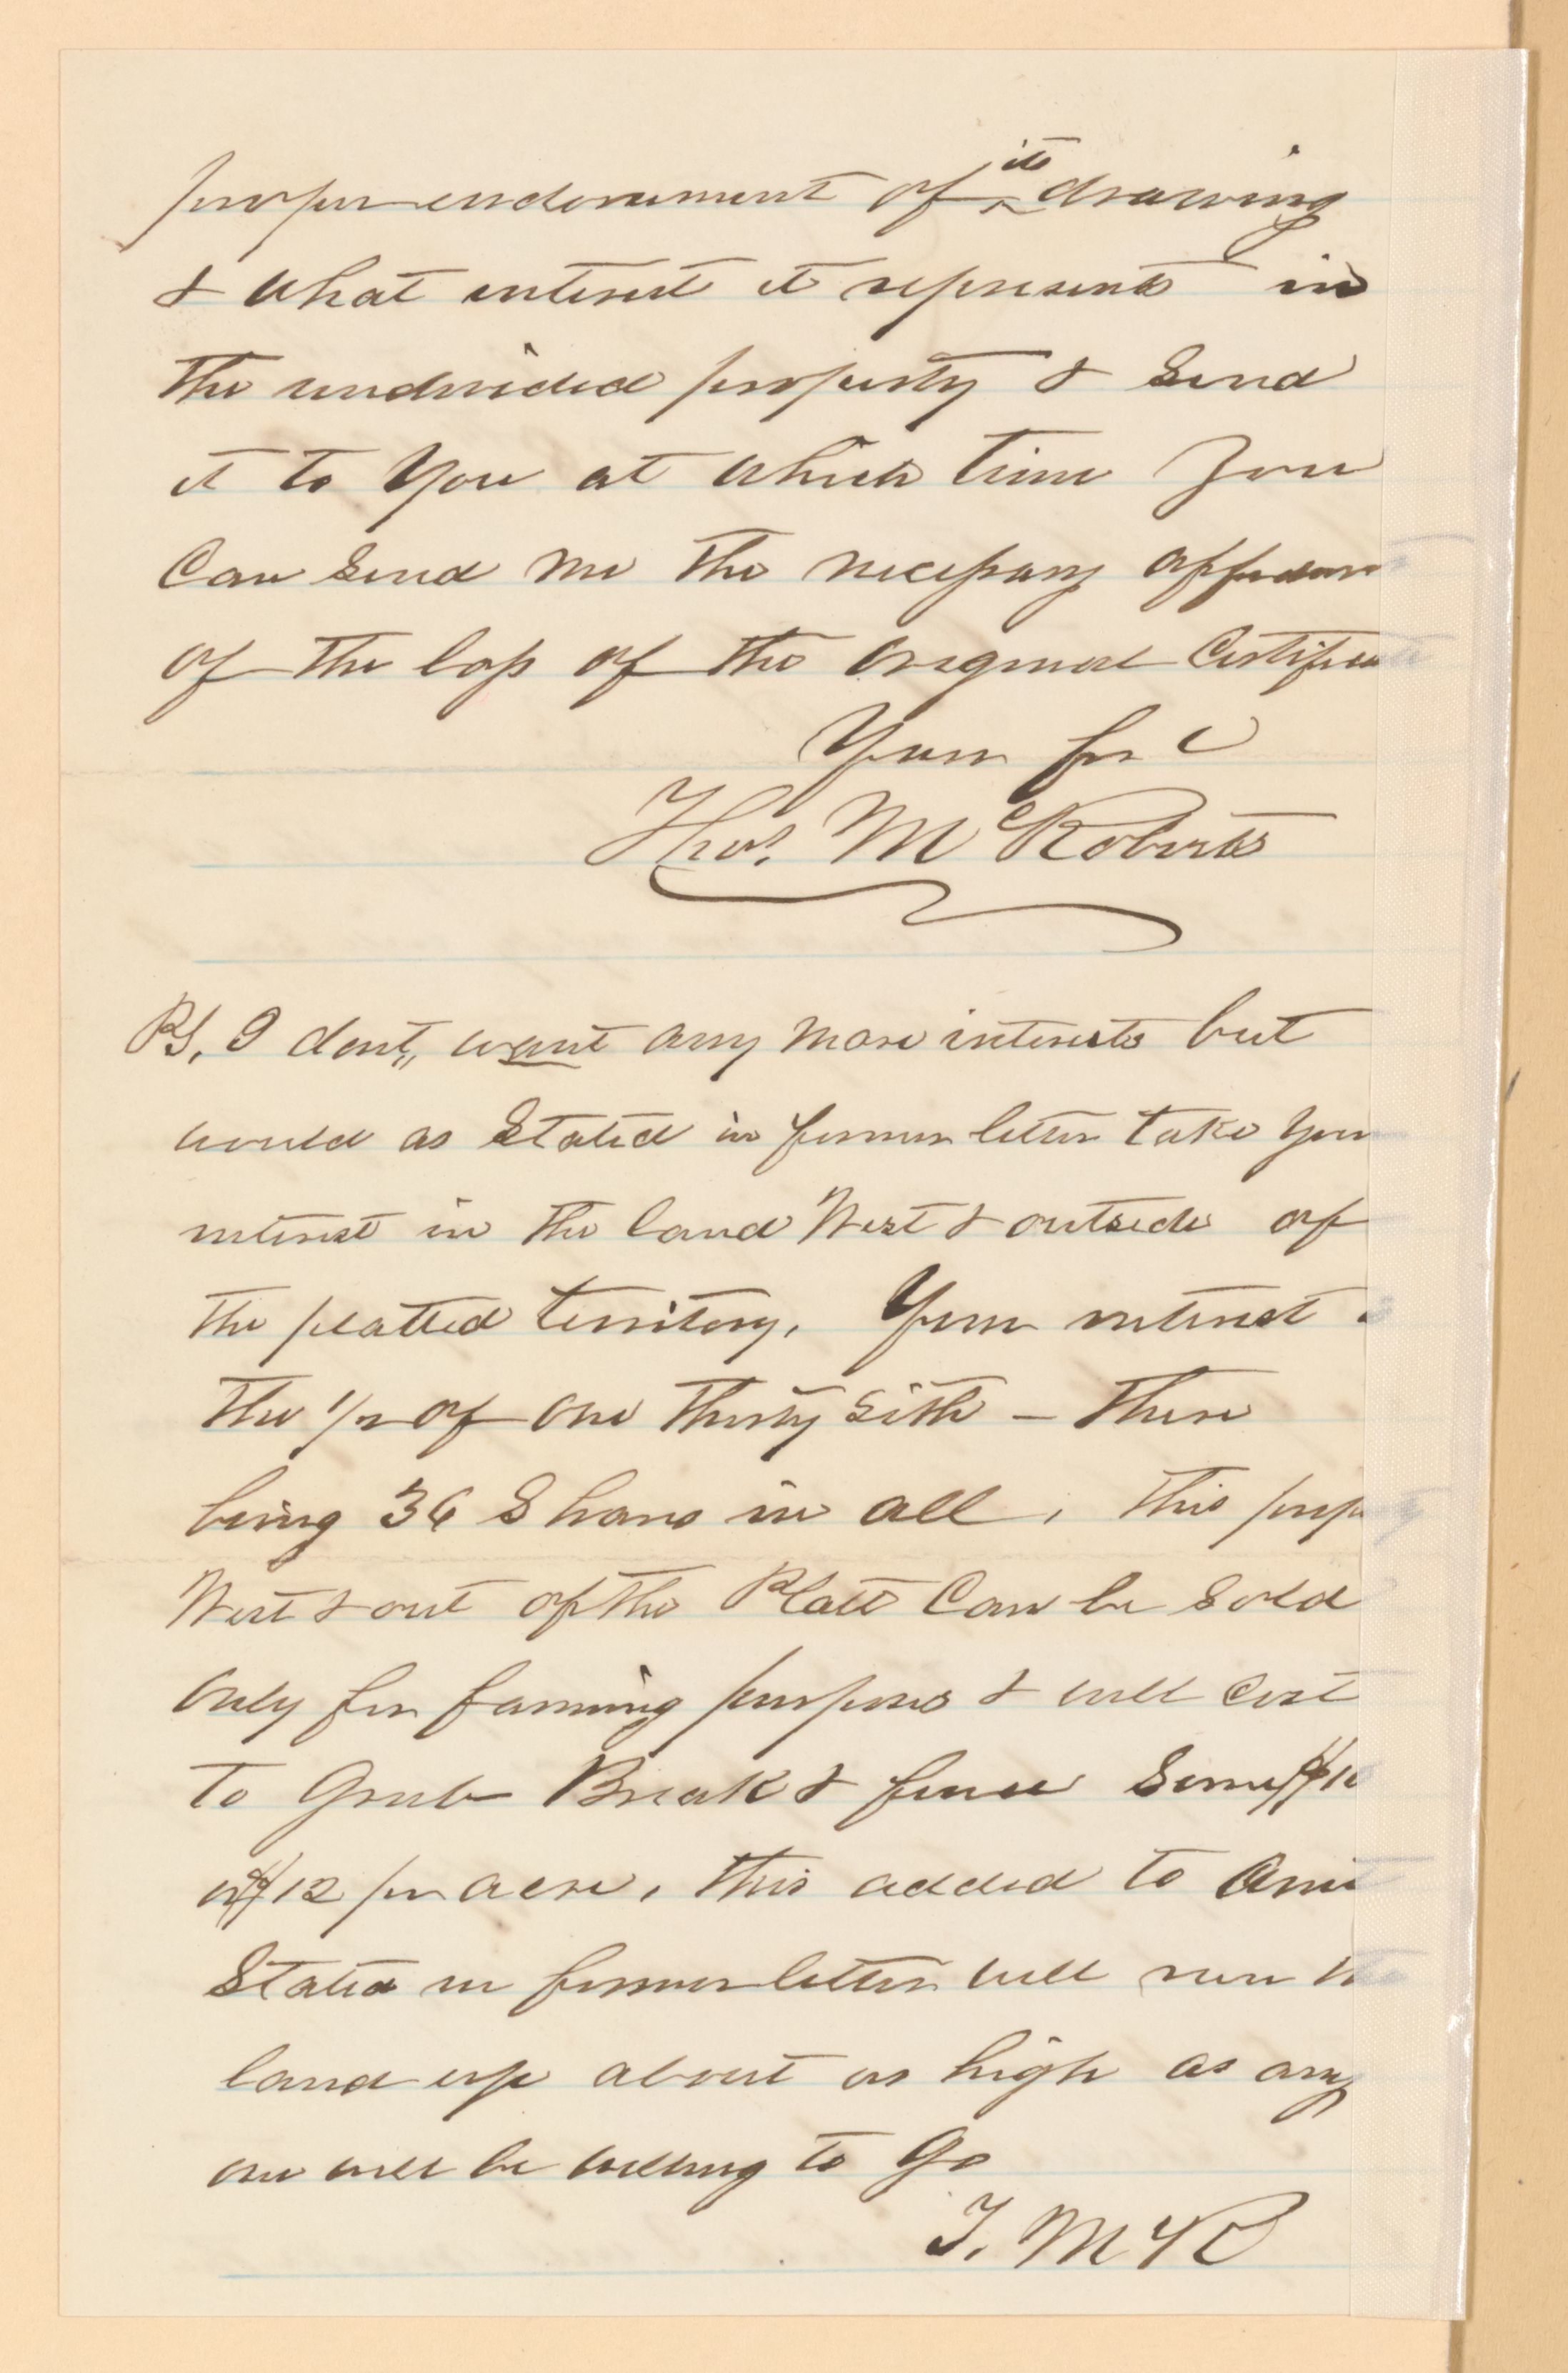 proper endorsement of its drawing
& what interest it represents in
the undivided property & Send
it to You at which time You
Can Send me the necessary
of the loss of the original Certificate
Yours for C
Thos. McRoberts
PS, I dont, want any more interests but
would as Stated in former letter take your
interest in the land West & outside of
the platted territory, Your interest is
the 1/2 of one thirty Sith – There
being 36 Shares in all, This property
West & out of the Platt Can be Sold
only for farming purposes & will cost
to Grub Break & fence Some $10
or $12 per acre, this added to Amt
Stated in former letter will run the
land up about as high as any
one will be willing to Go
T. McR